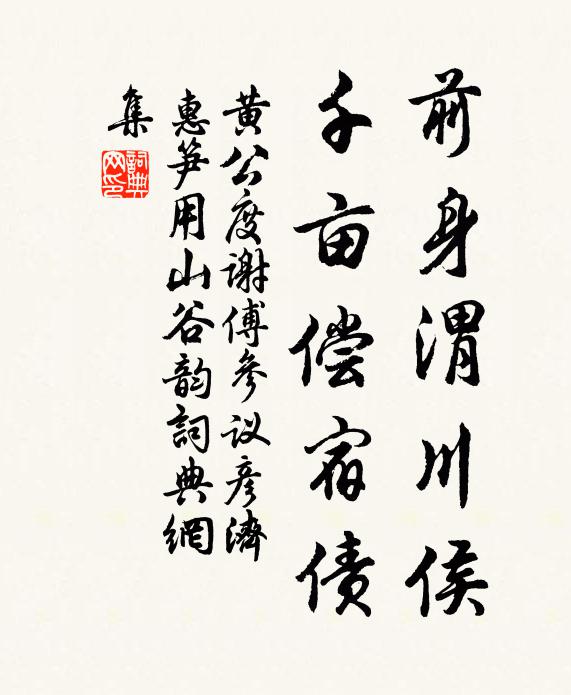 前身渭川侯
千亩偿宿债
黄公度谢傅参议彦济
惠笋用山谷韵詞典網
集
詞典网印